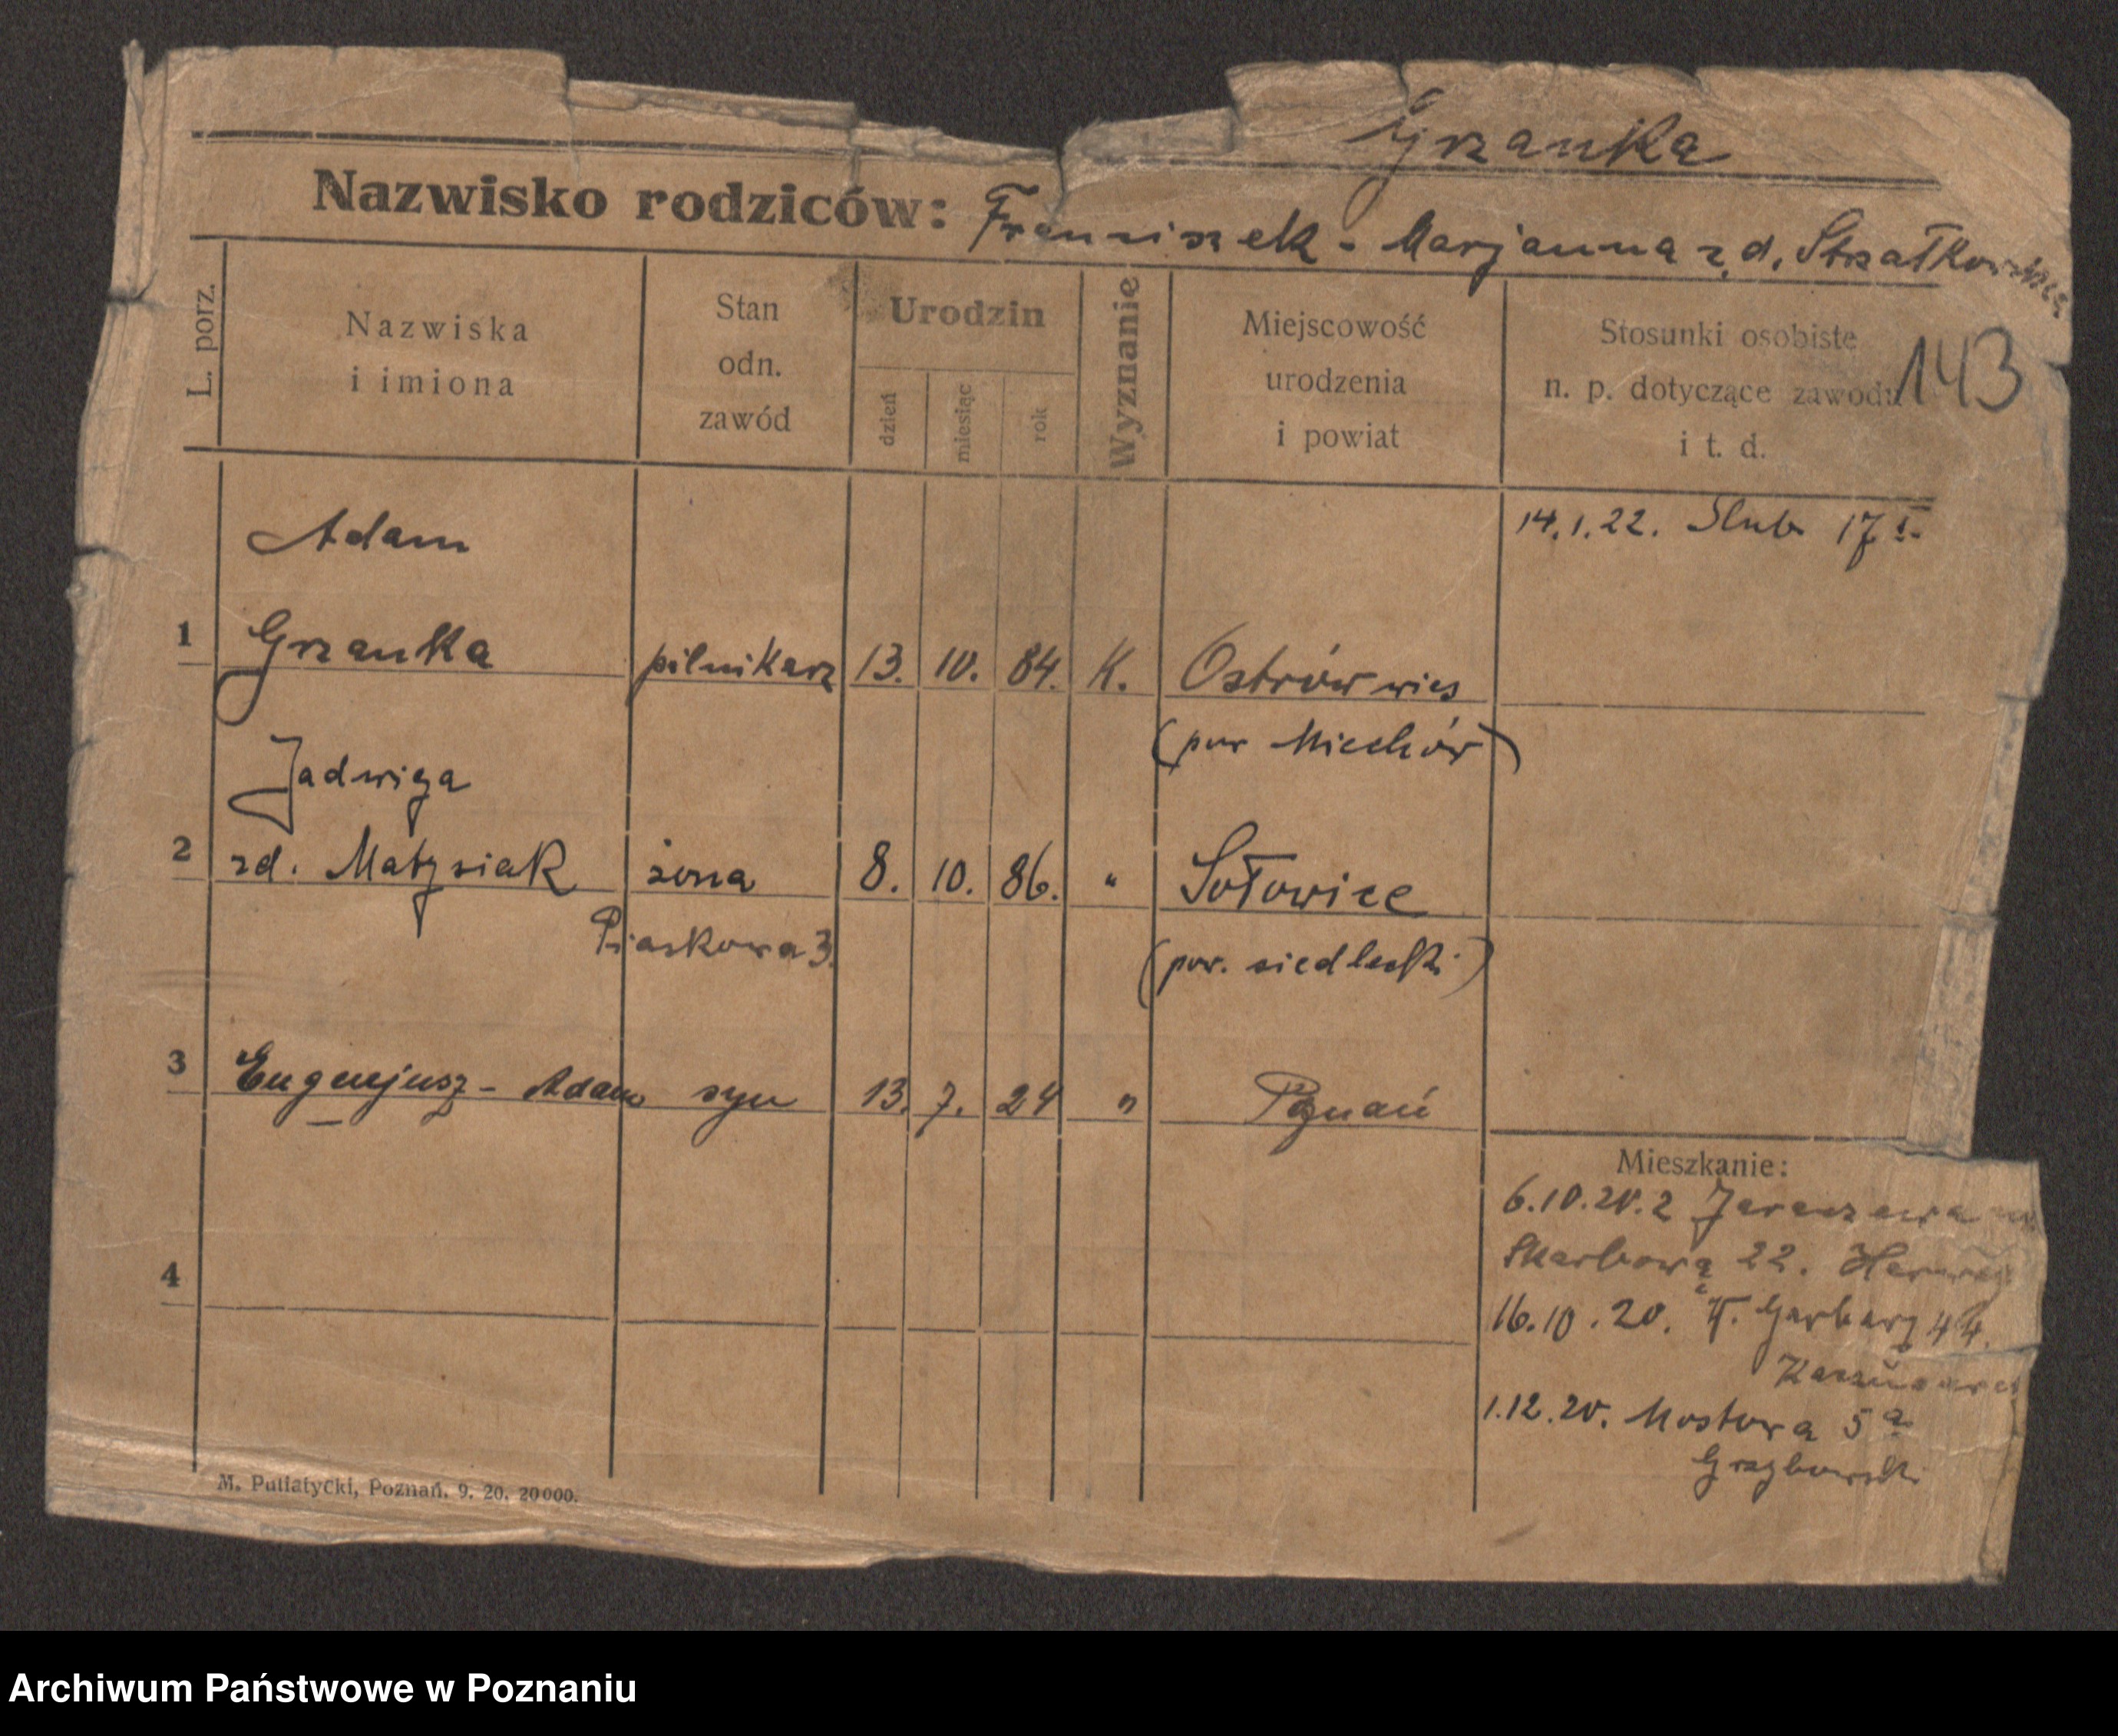 Grzanka
Nazwisko rodziców: Franciszek - Marjanna z d. Strzałkowska
143
L. porz.
Nazwiska
i imiona
Stan
odn.
zawód
Urodzin
dzień
miesiąc
rok
Wyznanie
Miejscowość
urodzenia
i powiat
Stosunki osobiste
n. p. dotyczące zawodu
i t. d.
14.1.22. Slub 17.I.
Adam
1 Grzanka pilnikarz 13. 10. 84. K. Ostrów wieś
(pow Miechów)
Jadwiga
2 zd. Matysiak żona 8. 10. 86. " Sołowice
Piaskowa 3. (pow. siedlecki)
3 Eugenjusz - Adam syn 13. 7. 24 " Poznań
4
Mieszkanie:
6.10.20. z
Skarbową 22.
16.10.20. W. Garbary 44.
1.12.20. Mostowa 5a
Grzybowski
M. Putiatycki, Poznań. 9. 20. 20000.
Archiwum Państwowe w Poznaniu